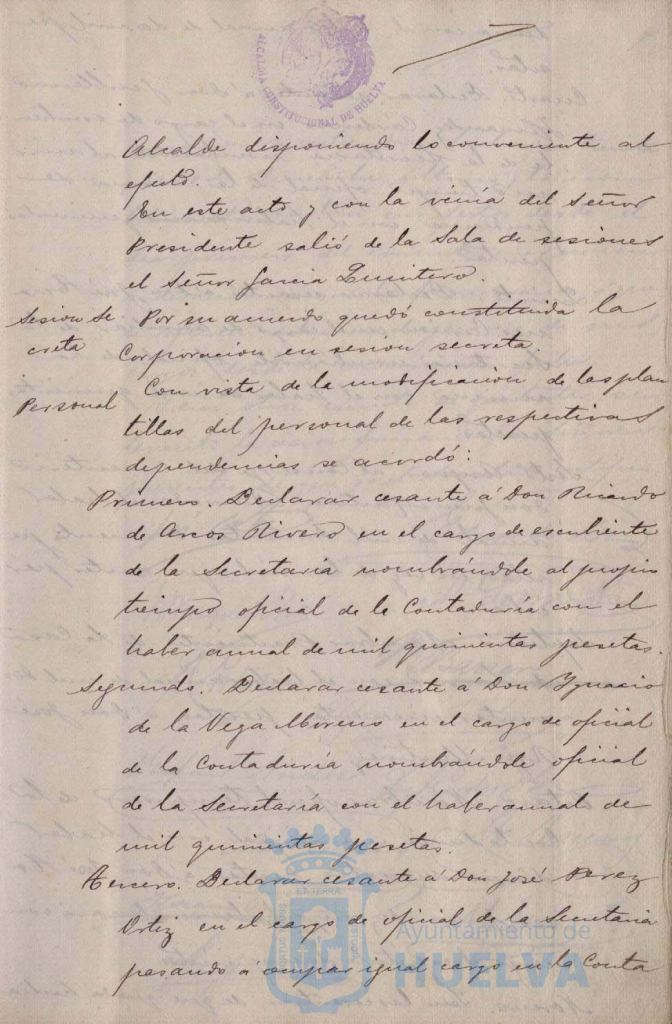 ALCALDIA CONSTITUCIONAL DE HUELVA
Alcalde disponiendo lo conveniente al
efecto.
En este acto y con la venia del Señor
Presidente salió de la Sala de sesiones
el Señor Garcia Quintero.
Sesion Se
creta
Por su acuerdo quedó constituida la
Corporacion en sesion secreta.
Personal
Con vista de la modificacion de las plan
tillas del personal de las respectivas
dependencias se acordó:
Primero. Declarar cesante á Don Ricardo
de Arcos Rivero en el cargo de escribiente
de la Secretaría nombrándole al propio
tiempo oficial de la Contaduría con el
haber annal de mil quinientas pesetas.
Segundo. Declarar cesante á Don Ygnacio
de la Vega Moreno en el cargo de oficial
de la Contaduría nombrándole oficial
de la Secretaría con el haber annal de
mil quinientas pesetas.
Tercero. Declarar cesante á Don José Perez
Ortiz en el cargo de oficial de la Secretaria
pasando á ocupar igual cargo en la Conta
Ayuntamiento de
HUELVA